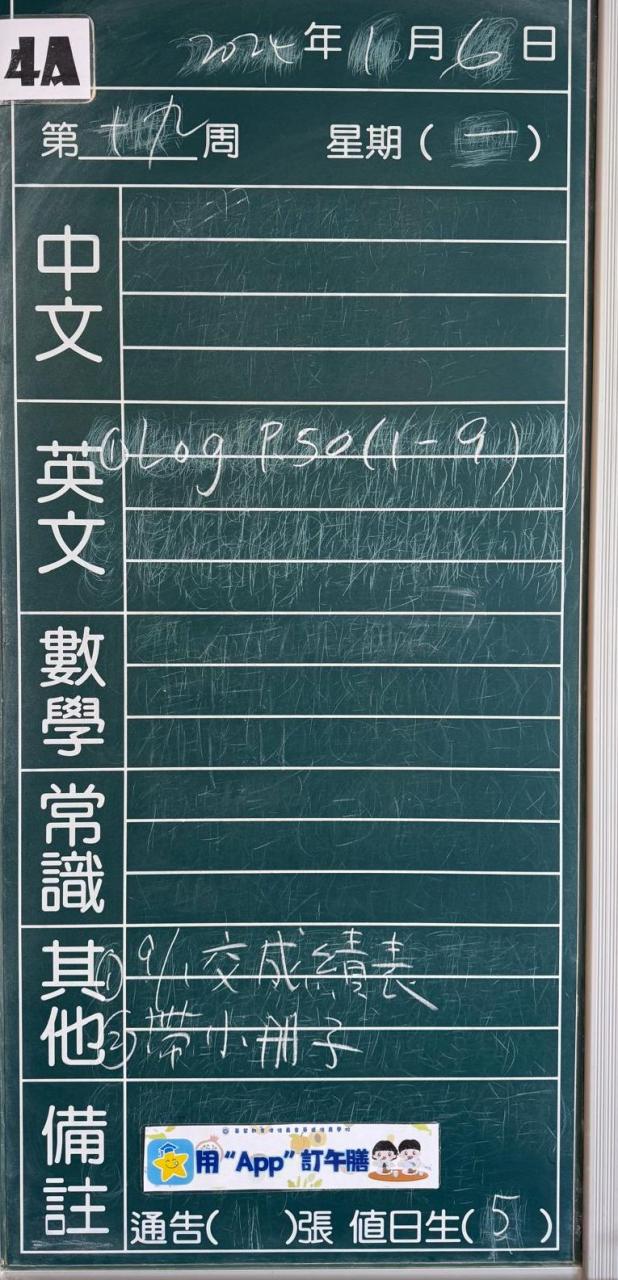 4A
2024年1月6日
第十九周 星期(一)
中文
英文
①Log P.50(1-9)
數學
常識
其他
①9/1交成績表
②帶小冊子
備註
用“App”訂午膳
通告( )張 值日生(5)